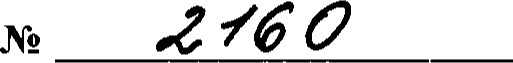 № 2160